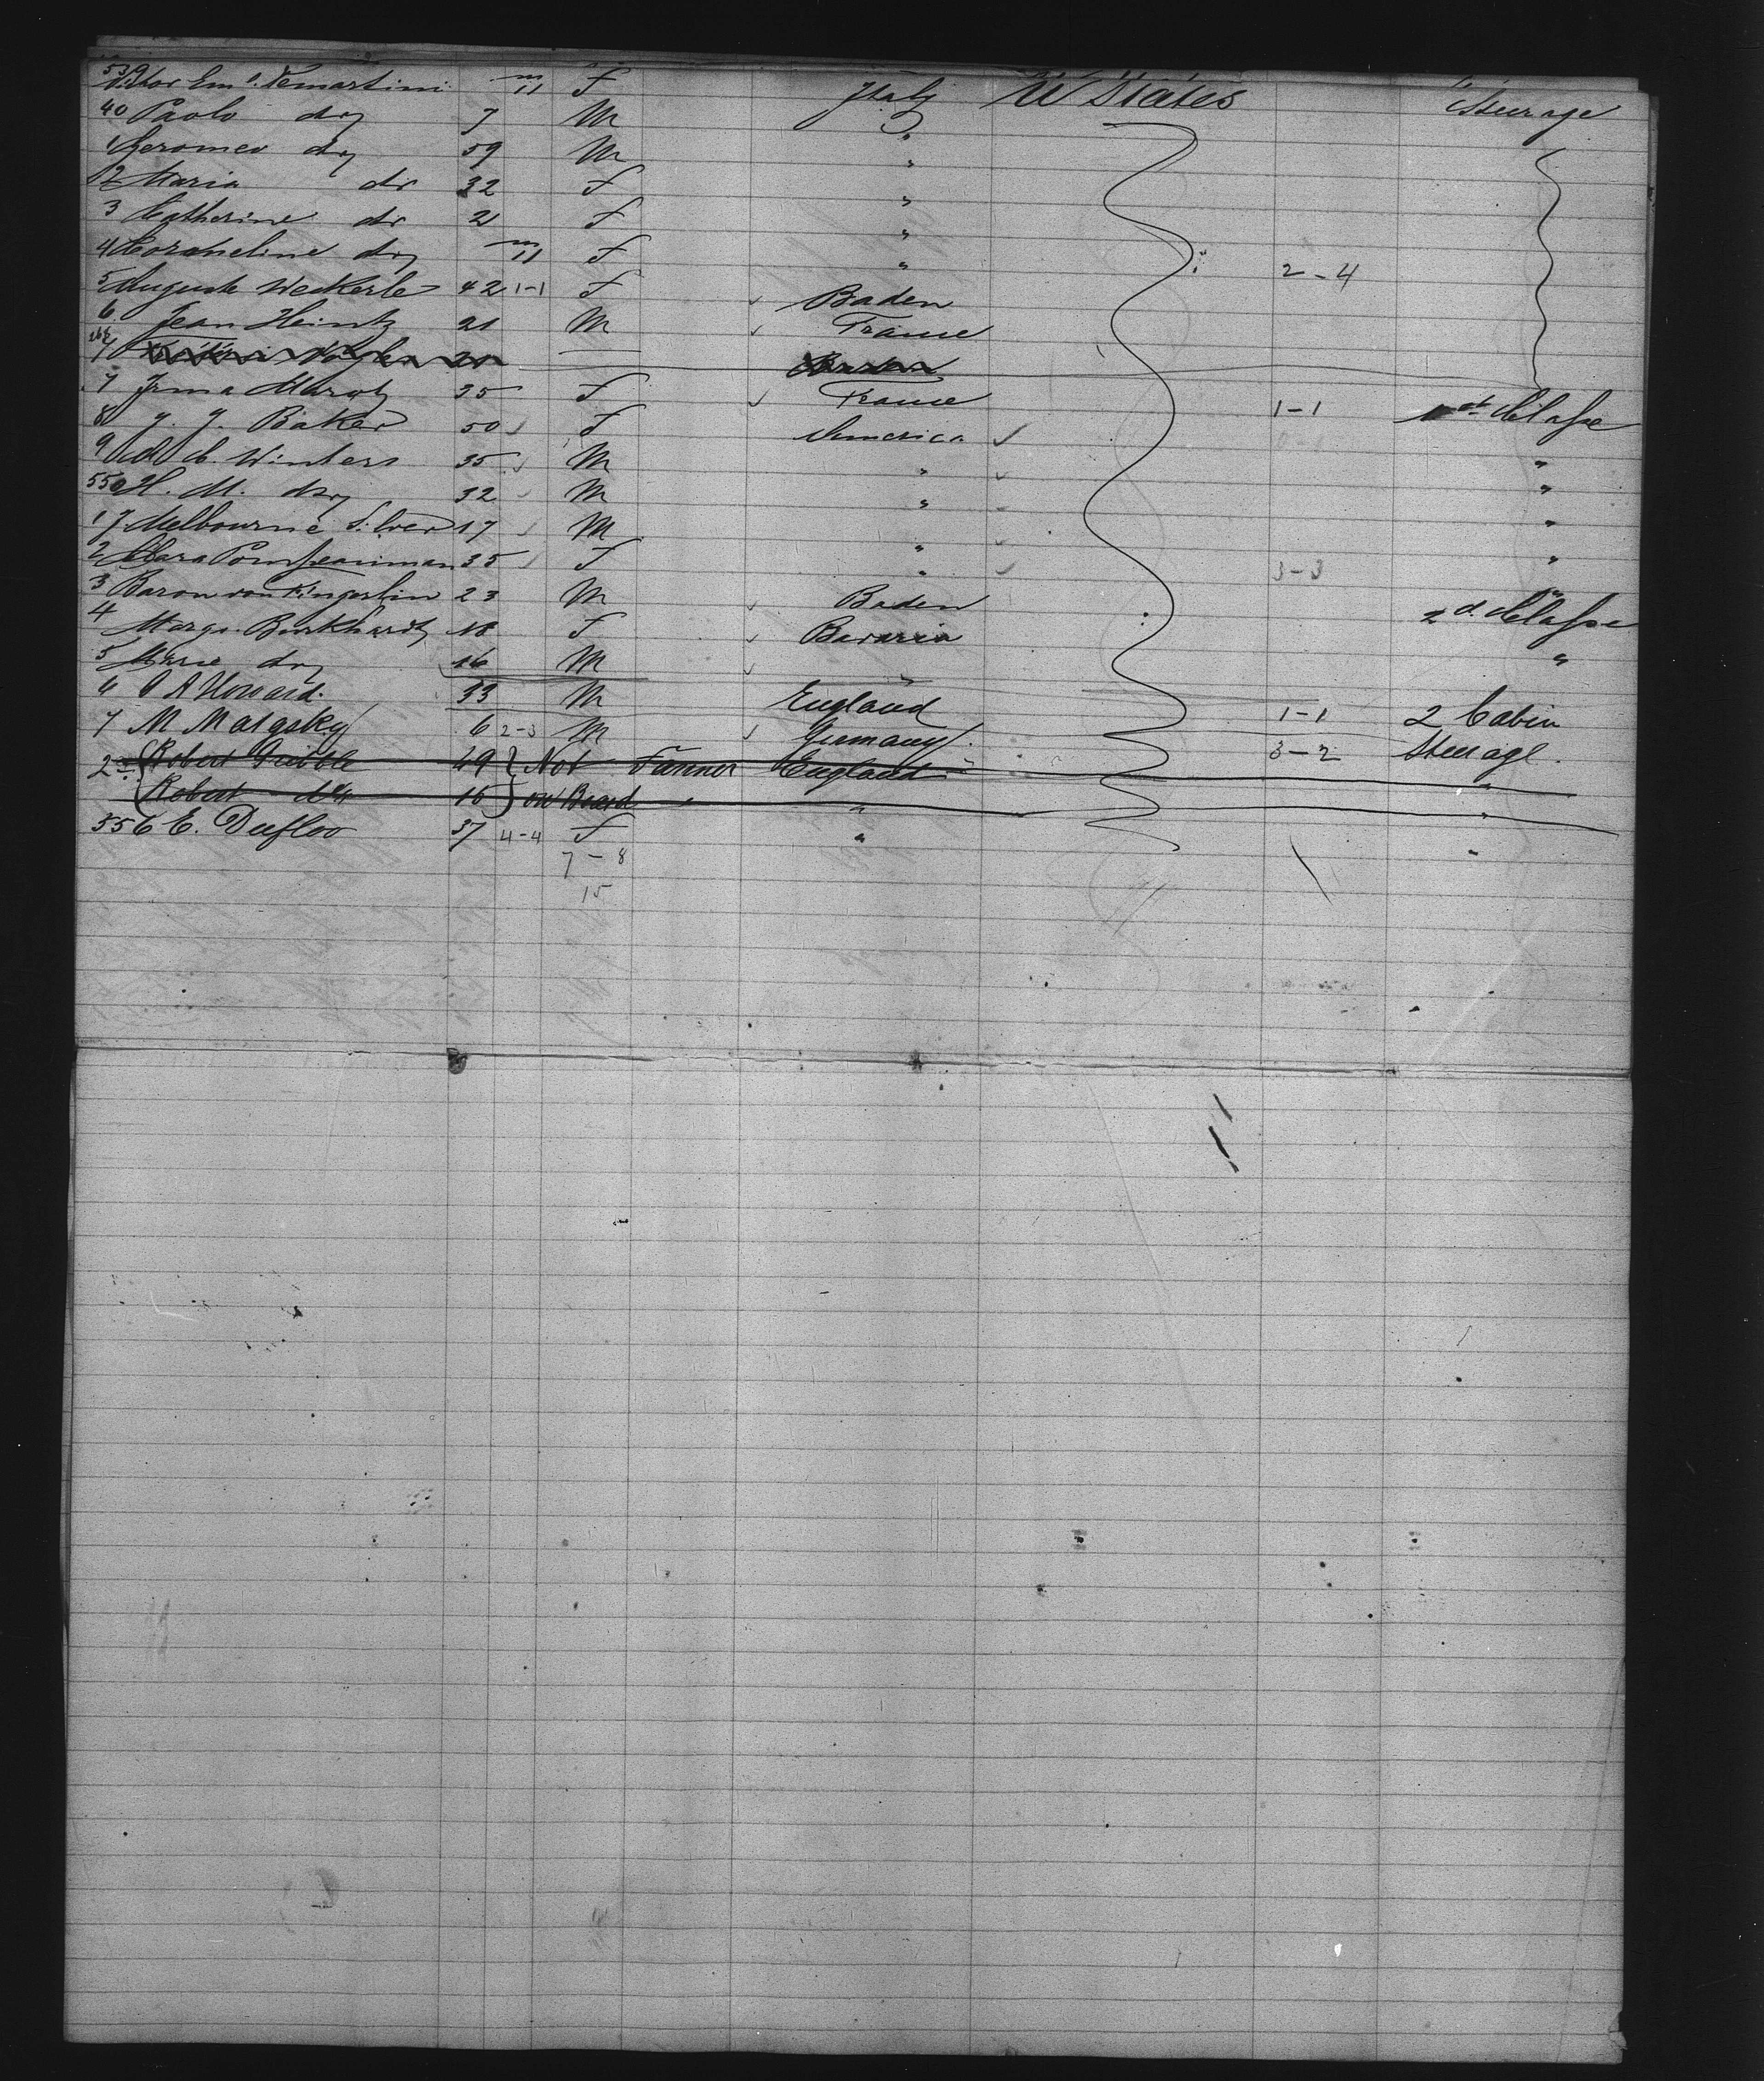 539 Victor Em. Demartini m 11 F Italy U States Steerage
40 Paolo do 7 M "
1 Geromeo do 59 M "
2 Maria do 32 F "
3 Catherine do 21 F "
4 do m 11 F "
5 Auguste Weckerle 42 1-1 F Baden 2-4
6 Jean Heintz 21 M France
7 Irma 35 F France 1-1 1st Classe
8 J. J. Baker 50 F America "
9 Winters 35 M " "
550 H. M. do 32 M " "
1 J. Melbourne Silver 17 M " "
2 Clara 35 F " 3-3 "
3 Baron von 23 M Baden 2d. Classe
4 Marga. Burkhardt 18 F Bavaria "
5 Marie do 16 M "
6 Howard. 33 M England 1-1 2 Cabin
7 M Malgasky 6 2-3 M Germany 3-2 Steerage.
Robert Gribble 49 Not Farmer England "
Robert do 15 on Board " " "
556 E. Dufloo 37 4-4 F " "
7-8
15